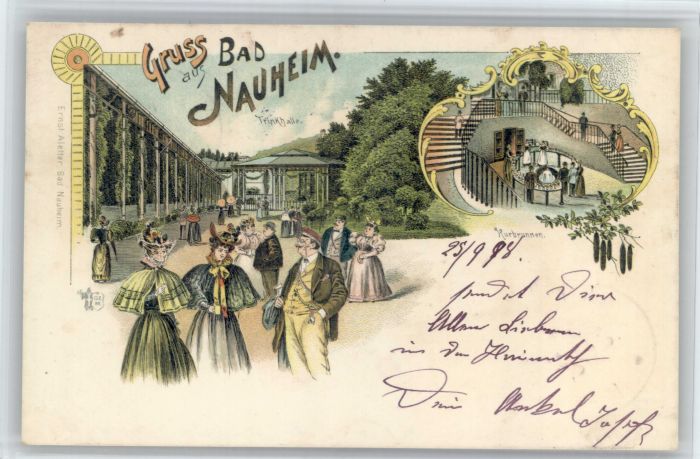 Gruss
aus BAD
NAUHEIM.
Trinkhalle.
Kurbrunnen.
Ernst Aletter, Bad Nauheim.
25/9 98.
sendet Dir
Allen Lieben
in der Heimath
Dein Onkel Josef